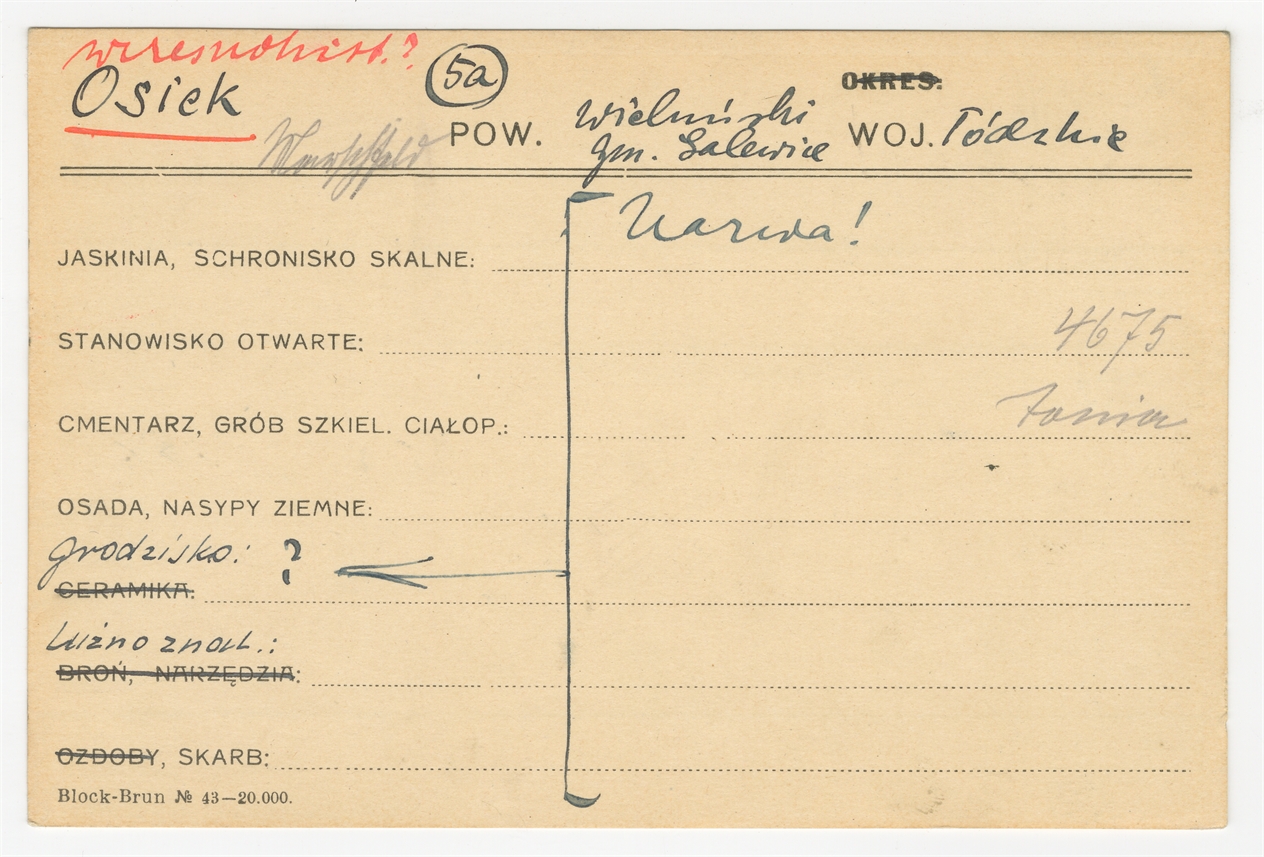 wczesnohist.?
Osiek
5a
OKRES:
POW. Wieluński
gm. Galewice
WOJ. Łódzkie
Nazwa!
JASKINIA, SCHRONISKO SKALNE:
STANOWISKO OTWARTE:
4675
CMENTARZ, GRÓB SZKIEL. CIAŁOP.:
OSADA, NASYPY ZIEMNE:
grodzisko: ?
CERAMIKA:
luźno znal.:
BROŃ, NARZĘDZIA:
OZDOBY, SKARB:
Block-Brun № 43—20.000.